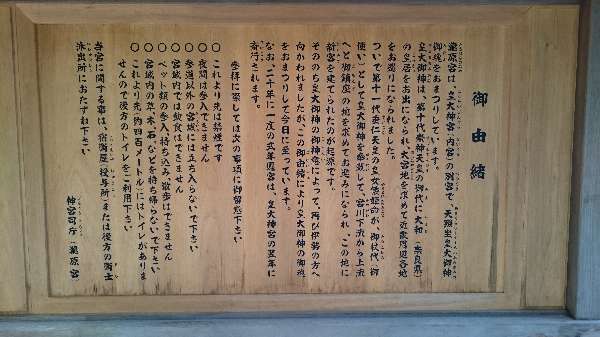 御由緒
瀧原宮は、皇大神宮(内宮)の別宮で、天照坐皇大御神
御魂をおまつりしています。
皇大御神は、第十代崇神天皇の御代に大和(奈良県)
の皇居をお出になられ、大宮地を求めて近畿周辺各地
をお巡りになられました。
ついで第十一代垂仁天皇の皇女倭姫命が、御杖代(御
使い)として皇大御神を奉戴して、宮川下流から上流
へと御鎮座の地を求めてお進みになられ、この地に
新宮を建てられたのが起源です。
そののち皇大御神の御神意によって、再び伊勢の方へ
向かわれましたが、この御由緒により皇大御神の御魂
をおまつりして今日に至っています。
なお二十年に一度の式年遷宮は、皇大神宮の翌年に
斎行されます。
参拝に際しては次の事項に御留意下さい
○これより先は禁煙です
○夜間は参入できません
○参道以外の宮域には立ち入らないで下さい
○宮域内では飲食はできません
○ペット類の参入、持ち込み、散歩はできません
○宮域内の草・木・石などを持ち帰らないで下さい
○これより先(約四百メートル)にはトイレがありま
せんので後方のトイレをご利用下さい
当宮に関する事は、宿衛屋(授与所)または後方の衛士
派出所におたずね下さい
神宮司庁(瀧原宮)